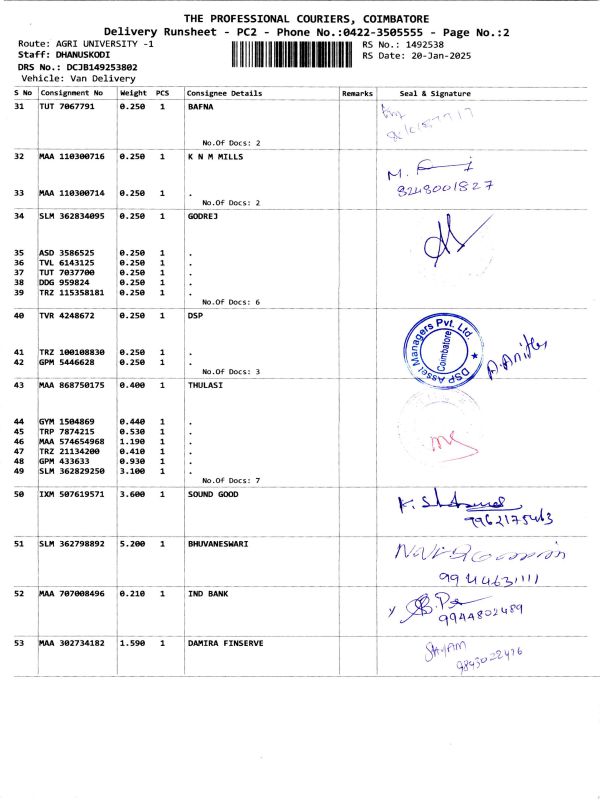 THE PROFESSIONAL COURIERS, COIMBATORE
Delivery Runsheet - PC2 - Phone No.:0422-3505555 - Page No.:2
Route: AGRI UNIVERSITY -1
RS No.: 1492538
Staff: DHANUSKODI
RS Date: 20-Jan-2025
DRS No.: DCJB149253802
Vehicle: Van Delivery
S No Consignment No Weight PCS Consignee Details Remarks Seal & Signature
31 TUT 7067791 0.250 1 BAFNA
No.Of Docs: 2
32 MAA 110300716 0.250 1 K N M MILLS
33 MAA 110300714 0.250 1 .
9248001827
No.Of Docs: 2
34 SLM 362834095 0.250 1 GODREJ
35 ASD 3586525 0.250 1 .
36 TVL 6143125 0.250 1 .
37 TUT 7037700 0.250 1 .
38 DDG 959824 0.250 1 .
39 TRZ 115358181 0.250 1 .
No.Of Docs: 6
40 TVR 4248672 0.250 1 DSP
DSP Asset Managers Pvt. Ltd.
Coimbatore
41 TRZ 100108830 0.250 1 .
42 GPM 5446628 0.250 1 .
No.Of Docs: 3
43 MAA 868750175 0.400 1 THULASI
44 GYM 1504869 0.440 1 .
45 TRP 7874215 0.530 1 .
46 MAA 574654968 1.190 1 .
47 TRZ 21134200 0.410 1 .
48 GPM 433633 0.930 1 .
49 SLM 362829250 3.100 1 .
No.Of Docs: 7
50 IXM 507619571 3.600 1 SOUND GOOD
9962175463
51 SLM 362798892 5.200 1 BHUVANESWARI
9944631111
52 MAA 707008496 0.210 1 IND BANK
9944802489
53 MAA 302734182 1.590 1 DAMIRA FINSERVE
SHYAM
9843022476